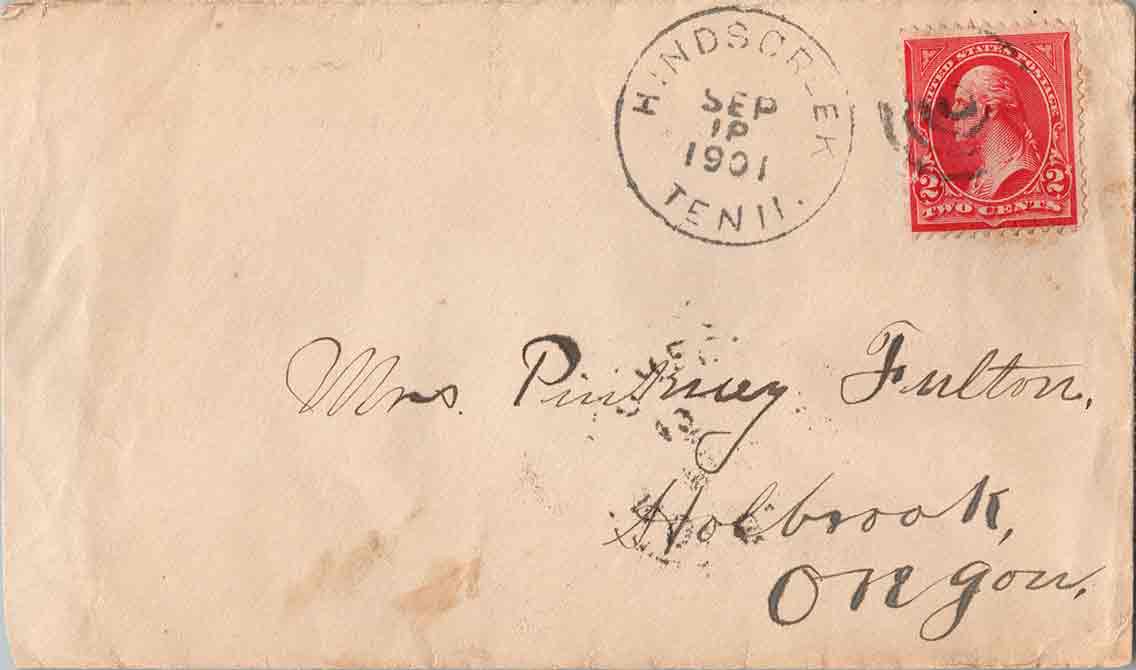 HINDSCREEK
SEP
1P
1901
TENN.
UNITED STATES POSTAGE
2 2
TWO CENTS
Mrs. Pinkney Fulton,
Holbrook,
Oregon,